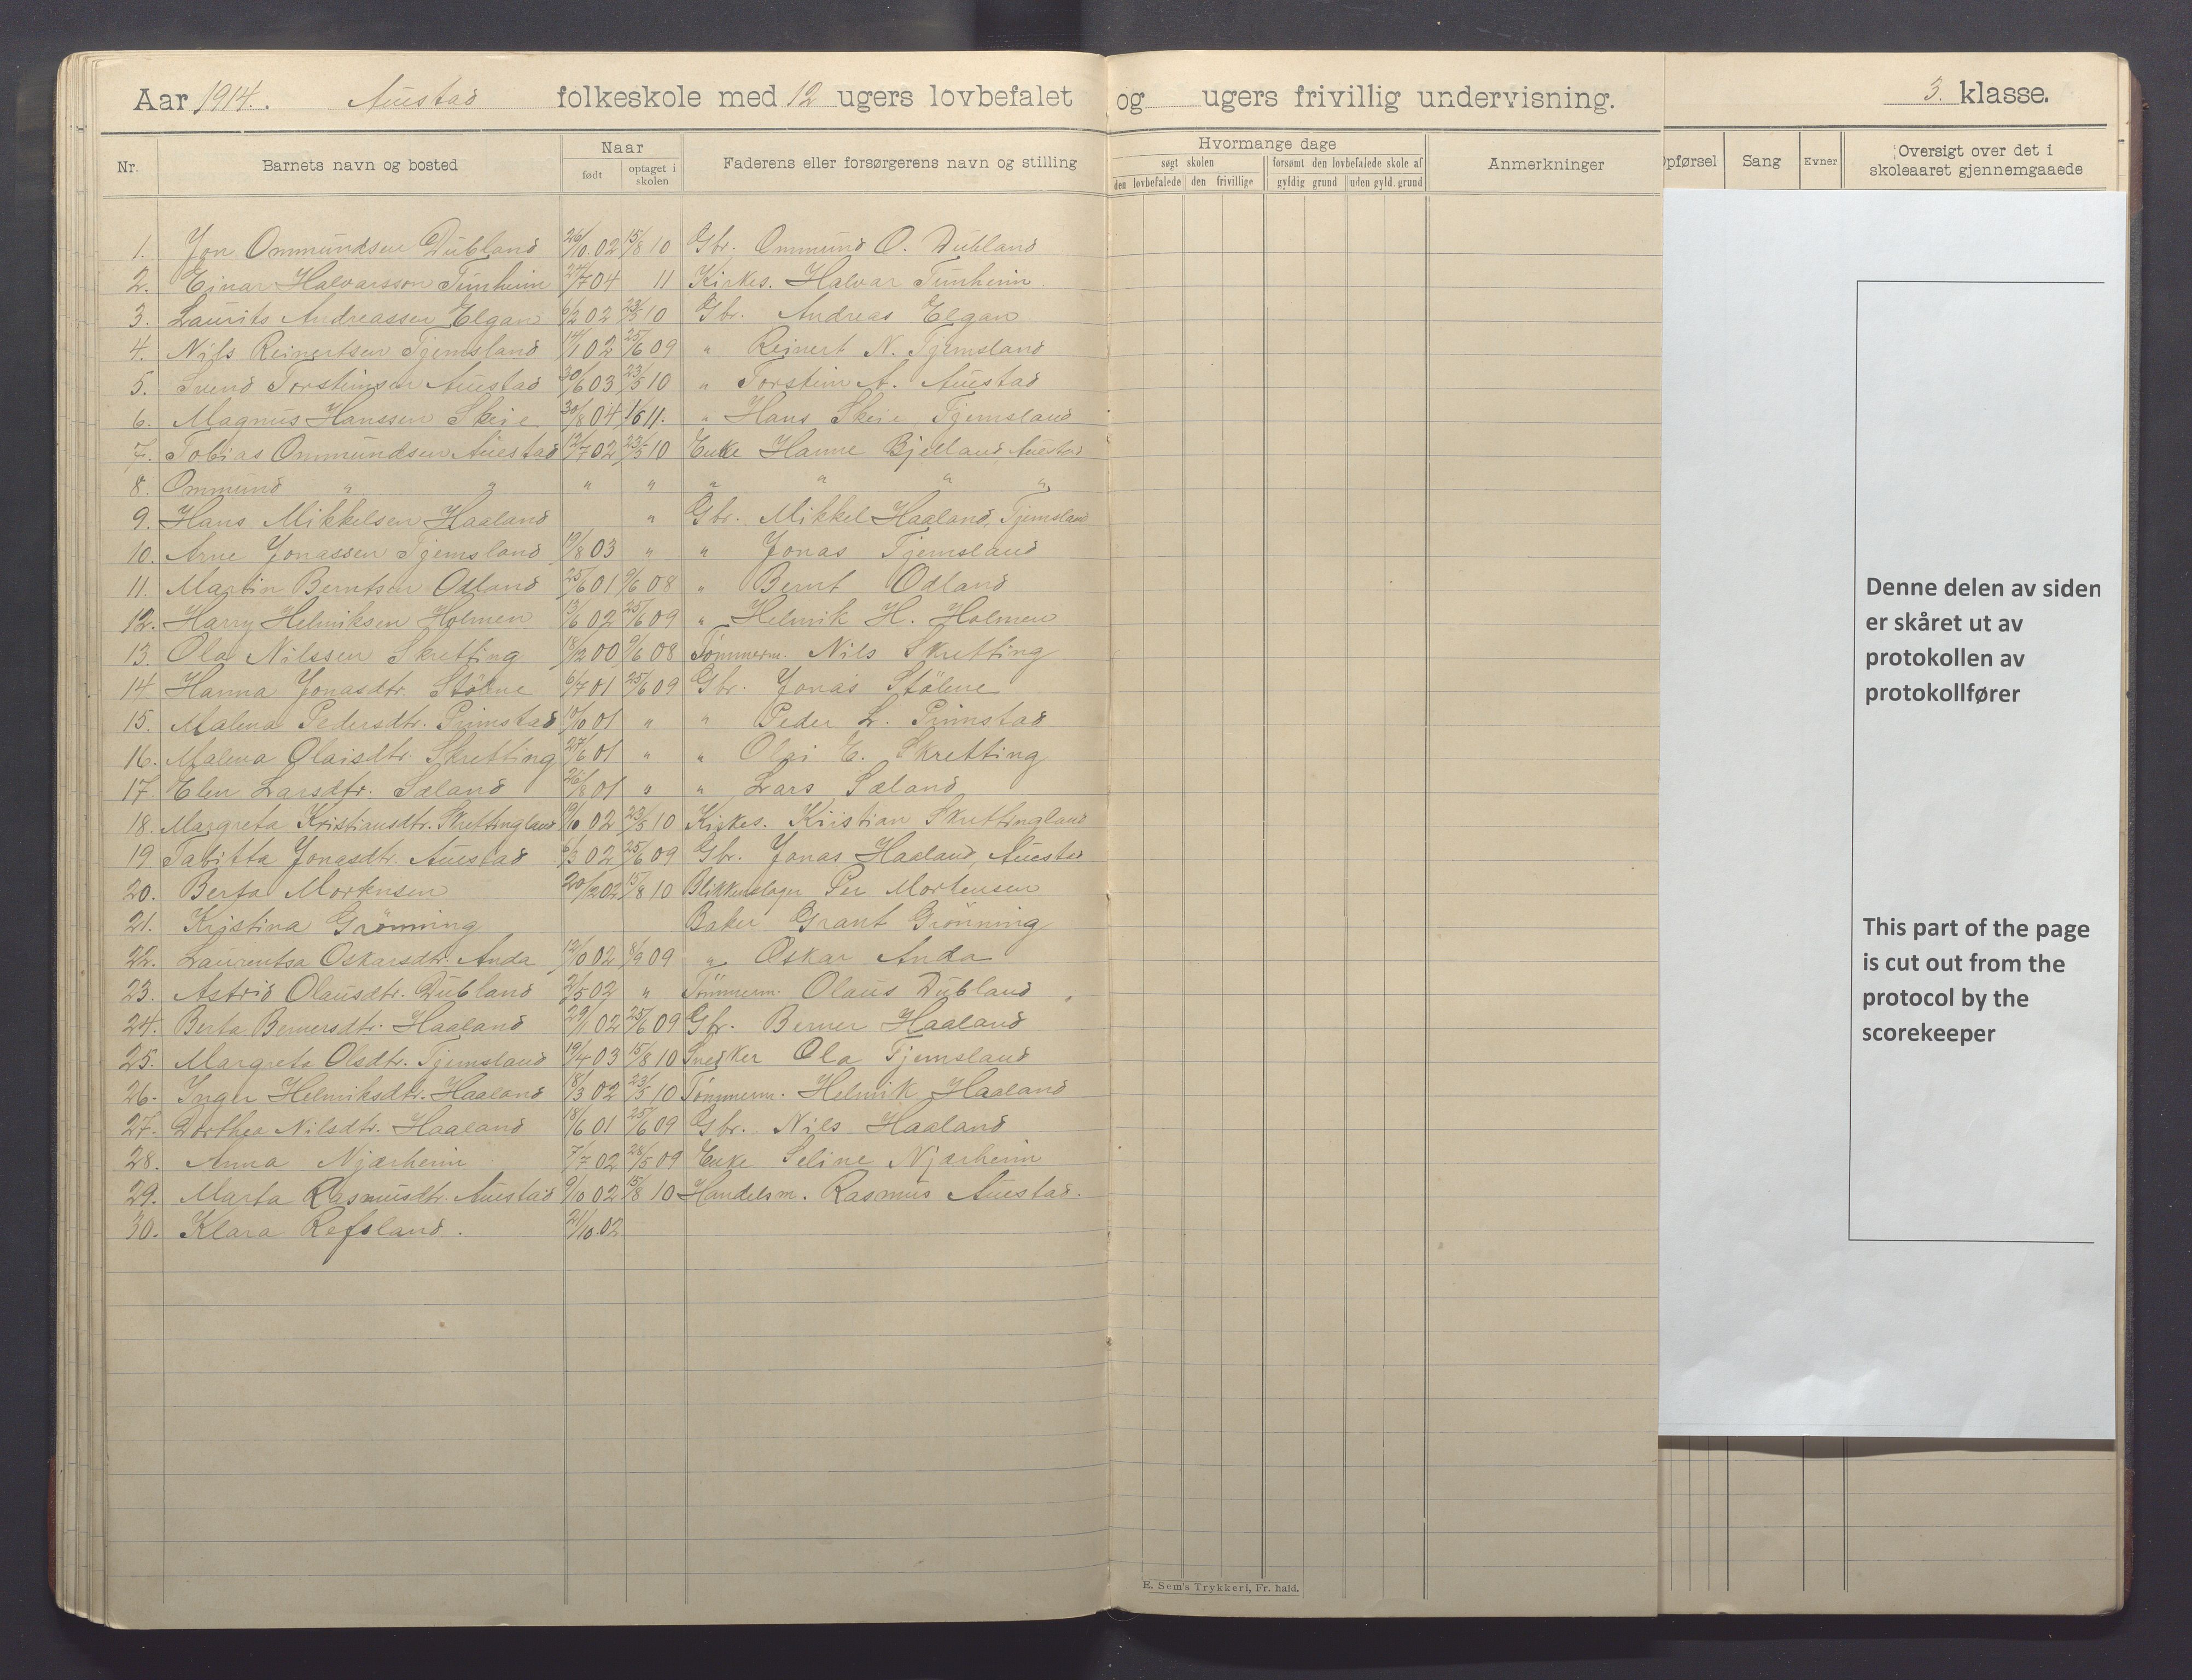 Aar 1914. Auestad folkeskole med 12 ugers lovbefalet og ugers frivillig undervisning. 3. klasse.
Nr. Barnets navn og bosted Naar født optaget i skolen Faderens eller forsørgerens navn og stilling Hvormange dage søgt skolen den lovbefalede den frivillige forsømt den lovbefalede skole af gyldig grund uden gyld. grund Anmerkninger pførsel Sang Evner Oversigt over det i skoleaaret gjennemgaaede
1. Jon Ommundsen Dubland 26/10 02 15/8 10 Gbr. Ommund O. Dubland
2. Einar Halvarsson Tunheim 24/7 04 11 Kirkes. Halvar Tunheim
3. Laurits Andreassen Elgan 6/2 02 23/5 10 Gbr. Andreas Elgan
4. Nils Reinertsen Tjemsland 14/1 02 25/6 09 " Reinert N. Tjemsland
5. Svend Torsteinsen Auestad 30/6 03 23/5 10 " Torstein A. Auestad
6. Magnus Hanssen Skeie 30/8 04 11. " Hans Skeie Tjemsland
7. Tobias Ommundsen Auestad 12/7 02 23/5 10 Enke Hanne Bjelland, Auestad
8. Ommund " " " " " " " "
9. Hans Mikkelsen Haaland " Gbr. Mikkel Haaland, Tjemsland
10. Arne Jonassen Tjemsland 19/8 03 " " Jonas Tjemsland
11. Martin Berntsen Odland 25/6 01 9/6 08 " Bernt Odland
12. Harry Helmiksen Holmen 13/6 02 25/6 09 " Helmik H. Holmen
13. Ola Nilssen Skretting 18/12 00 9/6 08 Tømmerm. Nils Skretting
14. Hanna Jonasdtr. Stölne 6/7 01 25/6 09 Gbr. Jonas Stölne
15. Malena Pedersdtr. Primstad 10/10 01 " " Peder L. Primstad
16. Malena Olaisdtr. Skretting 27/6 01 " " Olai E. Skretting
17. Elen Larsdtr. Sæland 26/8 01 " " Lars Sæland
18. Margreta Kristiansdtr. Skrettingland 19/10 02 23/5 10 Kirkes. Kristian Skrettingland
19. Tabitta Jonasdtr. Auestad 5/3 02 25/6 09 Gbr. Jonas Haaland, Auestad
20. Berta Mortensen 20/12 02 15/8 10 Blikkenslager Per Mortensen
21. Kristina Grönning Baker Grant Grönning
22. Laurentsa Oskarsdtr. Anda 12/10 02 8/9 09 " Oskar Anda
23. Astrid Olausdtr. Dubland 2/5 02 " Tömmerm. Olaus Dubland
24. Berta Bernersdtr. Haaland 29/1 02 25/6 09 Gbr. Berner Haaland
25. Margreta Olsdtr. Tjemsland 19/4 03 15/8 10 Snedker Ola Tjemsland
26. Inger Helmiksdtr. Haaland 18/3 02 23/5 10 Tömmerm. Helmik Haaland
27. Dorthea Nilsdtr. Haaland 18/6 01 25/6 09 Gbr. Nils Haaland
28. Anna Njærheim 7/7 02 28/5 09 Enke Seline Njærheim
29. Marta Rasmusdtr. Auestad 9/10 02 15/8 10 Handelsm. Rasmus Auestad.
30. Klara Refsland. 21/10.02
E. Sem's Trykkeri, Fr. hald.
Denne delen av siden
er skåret ut av
protokollen av
protokollfører
This part of the page
is cut out from the
protocol by the
scorekeeper